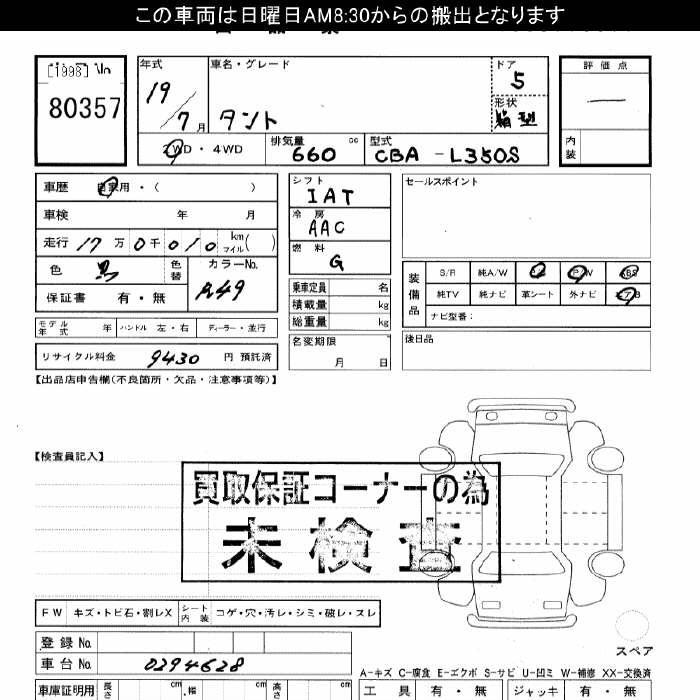 この車両は日曜日AM8:30からの搬出となります
[1998]
80357
年式
19/7月
車名・グレード
タント
ドア
5
形状
箱型
評価点
内装
2WD・4WD
排気量
660 cc
型式
CBA-L350S
車歴 自家用・( )
車検 年 月
走行 17万0千010 km マイル( )
色 黒
色替
カラーNo.
保証書 有・無
モデル年式 年 ハンドル 左・右 ディーラー・並行
リサイクル料金 9430 円 預託済
シフト
IAT
冷房
AAC
燃料
G
乗車定員 名
積載量 kg
総重量 kg
名変期限
月 日
セールスポイント
装備品
S/R 純A/W P/S P/W ABS
純TV 純ナビ 革シート 外ナビ エアB
ナビ型番:
後日品
【出品店申告欄(不良箇所・欠品・注意事項等)】
【検査員記入】
買取保証コーナーの為
未検査
FW キズ・トビ石・割レX シート内装 コゲ・穴・汚レ・シミ・破レ・スレ
登録No.
車台No. 0294628
スペア
A-キズ C-腐食 E-エクボ S-サビ U-凹ミ W-補修 XX-交換済
車庫証明用 長さ cm 幅 cm 高さ cm
工具 有・無 ジャッキ 有・無